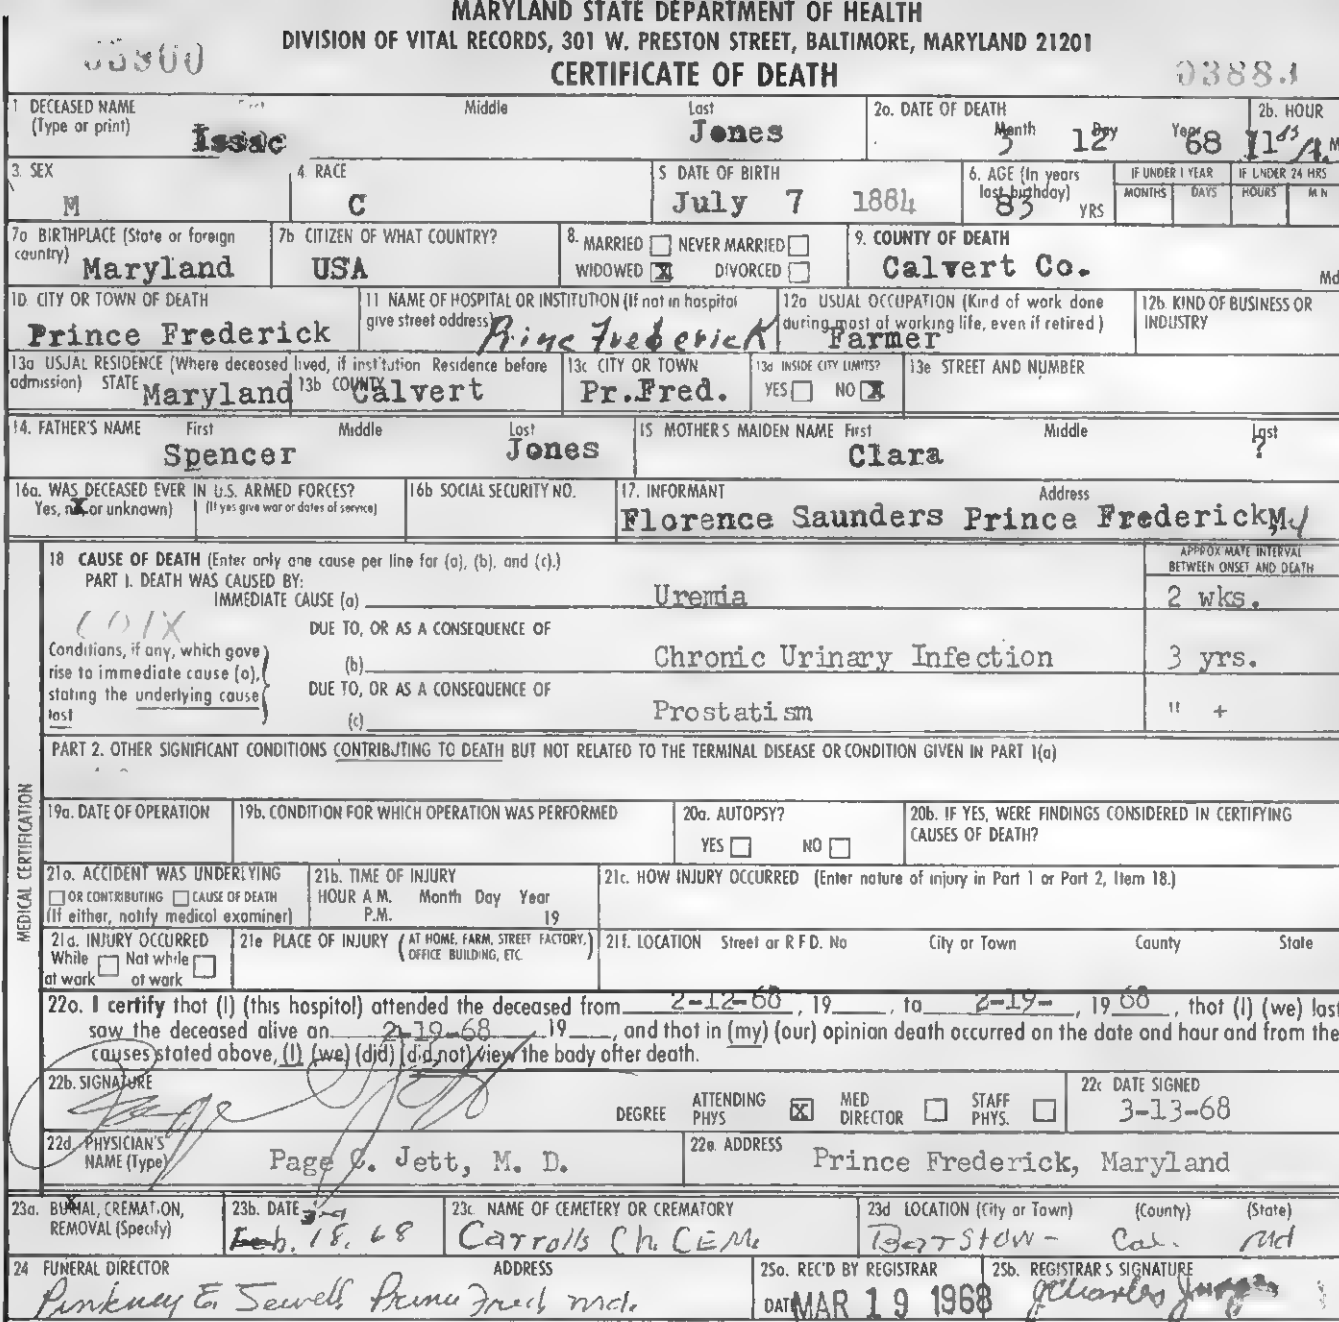 MARYLAND STATE DEPARTMENT OF HEALTH
DIVISION OF VITAL RECORDS, 301 W. PRESTON STREET, BALTIMORE, MARYLAND 21201
CERTIFICATE OF DEATH
1 DECEASED NAME (Type or print) First Middle Last
Issac Jones
2a. DATE OF DEATH Month Day Year
3 12 68
2b. HOUR
A. M
3. SEX
M
4. RACE
C
5 DATE OF BIRTH
July 7 1884
6. AGE (In years last birthday)
83 YRS
IF UNDER 1 YEAR MONTHS DAYS
IF UNDER 24 HRS HOURS MIN
7a BIRTHPLACE (State or foreign country)
Maryland
7b CITIZEN OF WHAT COUNTRY?
USA
8. MARRIED NEVER MARRIED
WIDOWED X DIVORCED
9. COUNTY OF DEATH
Calvert Co. Md
10 CITY OR TOWN OF DEATH
Prince Frederick
11 NAME OF HOSPITAL OR INSTITUTION (If not in hospital give street address)
Prince Frederick
12a USUAL OCCUPATION (Kind of work done during most of working life, even if retired)
Farmer
12b. KIND OF BUSINESS OR INDUSTRY
13a USUAL RESIDENCE (Where deceased lived, if institution Residence before admission) STATE
Maryland
13b COUNTY
Calvert
13c CITY OR TOWN
Pr.Fred.
13d INSIDE CITY LIMITS?
YES NO X
13e STREET AND NUMBER
14. FATHER'S NAME First Middle Last
Spencer Jones
15 MOTHER'S MAIDEN NAME First Middle Last
Clara ?
16a. WAS DECEASED EVER IN U.S. ARMED FORCES?
Yes, no or unknown) (If yes give war or dates of service)
16b SOCIAL SECURITY NO.
17. INFORMANT Address
Florence Saunders Prince Frederick Md
18 CAUSE OF DEATH (Enter only one cause per line for (a), (b), and (c).)
APPROXIMATE INTERVAL BETWEEN ONSET AND DEATH
PART I. DEATH WAS CAUSED BY:
IMMEDIATE CAUSE (a) Uremia 2 wks.
DUE TO, OR AS A CONSEQUENCE OF
Conditions, if any, which gave rise to immediate cause (a), stating the underlying cause last
(b) Chronic Urinary Infection 3 yrs.
DUE TO, OR AS A CONSEQUENCE OF
(c) Prostatism " +
PART 2. OTHER SIGNIFICANT CONDITIONS CONTRIBUTING TO DEATH BUT NOT RELATED TO THE TERMINAL DISEASE OR CONDITION GIVEN IN PART 1(a)
MEDICAL CERTIFICATION
19a. DATE OF OPERATION
19b. CONDITION FOR WHICH OPERATION WAS PERFORMED
20a. AUTOPSY?
YES NO
20b. IF YES, WERE FINDINGS CONSIDERED IN CERTIFYING CAUSES OF DEATH?
21a. ACCIDENT WAS UNDERLYING
OR CONTRIBUTING CAUSE OF DEATH
(If either, notify medical examiner)
21b. TIME OF INJURY
HOUR A.M. Month Day Year
P.M. 19
21c. HOW INJURY OCCURRED (Enter nature of injury in Part 1 or Part 2, Item 18.)
21d. INJURY OCCURRED
While at work Not while at work
21e PLACE OF INJURY (AT HOME, FARM, STREET FACTORY, OFFICE BUILDING, ETC.
21f. LOCATION Street or R F D. No City or Town County State
22a. I certify that (I) (this hospital) attended the deceased from 2-12-68, 19 , to 2-19-, 19 68, that (I) (we) last
saw the deceased alive on 2-19-68 19 , and that in (my) (our) opinion death occurred on the date and hour and from the
causes stated above, (I) (we) (did) (did not) view the body after death.
22b. SIGNATURE
DEGREE ATTENDING PHYS X MED DIRECTOR STAFF PHYS.
22c DATE SIGNED
3-13-68
22d PHYSICIAN'S NAME (Type)
Page C. Jett, M. D.
22e. ADDRESS
Prince Frederick, Maryland
23a. BURIAL, CREMATION, REMOVAL (Specify)
23b. DATE
Feb. 18, 68
23c NAME OF CEMETERY OR CREMATORY
Carrolls Ch. CEM.
23d LOCATION (City or Town) (County) (State)
Barstow - Cal. Md
24 FUNERAL DIRECTOR ADDRESS
Pinkney E. Sewell Prince Fred Md.
25a. REC'D BY REGISTRAR
DATE MAR 19 1968
25b. REGISTRAR'S SIGNATURE